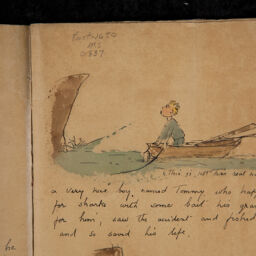 MS
0337
This is, last was seal
a very nice boy named Tommy who
for sharks with some bait his
for him, saw the accident and fished
and so saved his life.
he